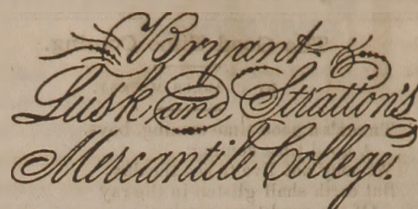 Bryant
Lusk and Stratton's
Mercantile College.